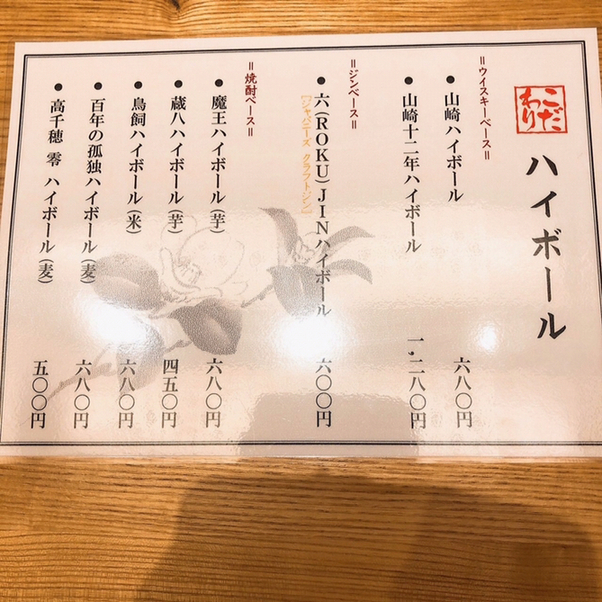 こだわり
ハイボール
＝ウイスキーベース＝
●山崎ハイボール 六八〇円
●山崎十二年ハイボール 一,二八〇円
＝ジンベース＝
●六(ROKU)JINハイボール 六〇〇円
【ジャパニーズ クラフトジン】
＝焼酎ベース＝
●魔王ハイボール(芋) 六八〇円
●蔵八ハイボール(芋) 四五〇円
●鳥飼ハイボール(米) 六八〇円
●百年の孤独ハイボール(麦) 六八〇円
●高千穂 零 ハイボール(麦) 五〇〇円